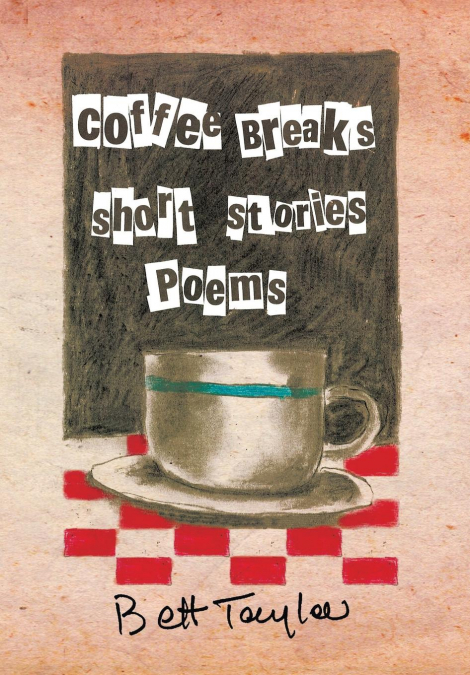 Coffee Breaks
short stories
Poems
Bett Taylor